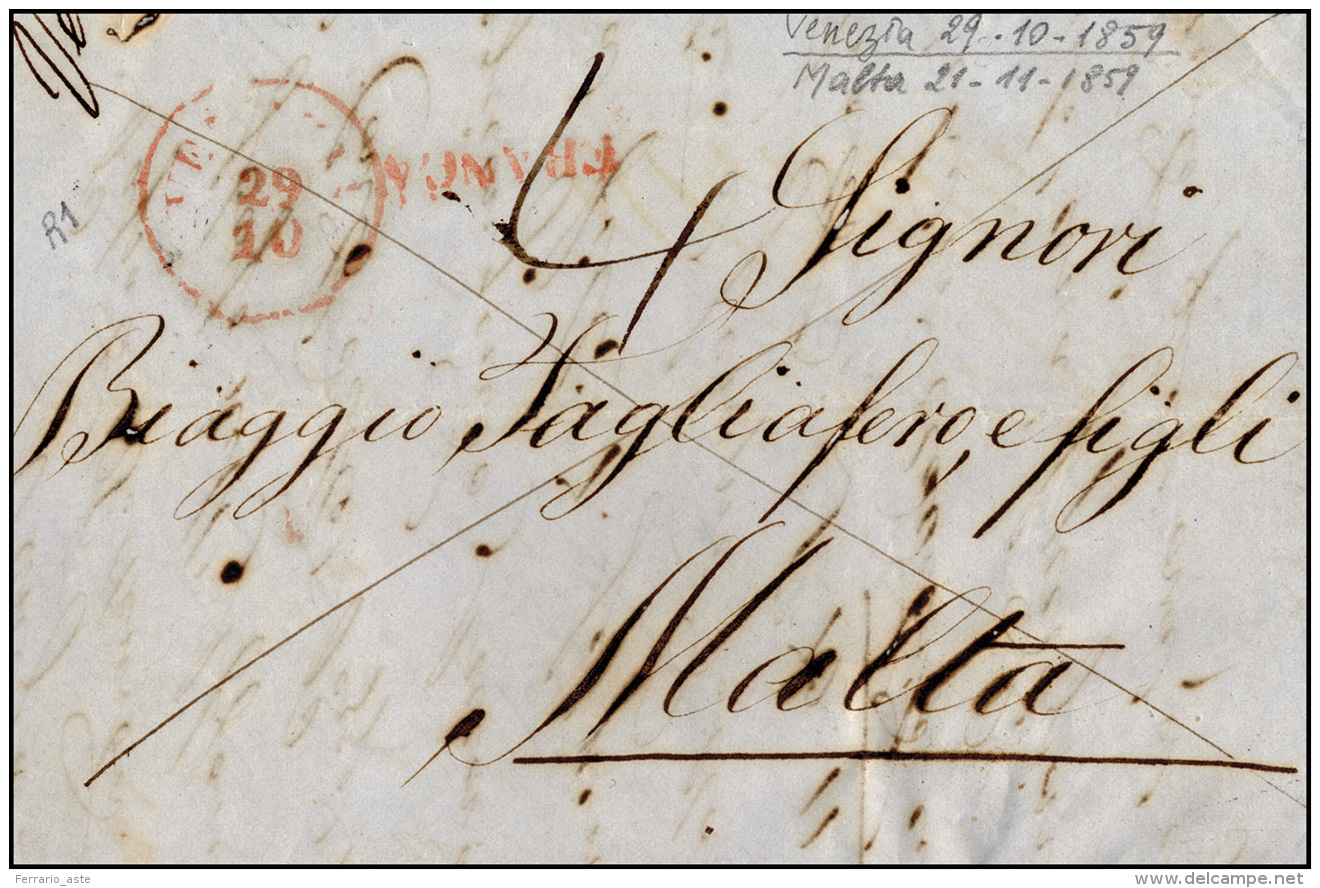 Venezia 29-10-1859
Malta 21-11-1859
29
10
FRANCA
R1
Signori
Biaggio Tagliafero, e figli
Malta
Ferrario_aste
www.delcampe.net